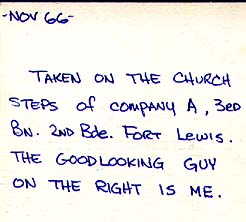 -NOV 66-
TAKEN ON THE CHURCH
STEPS of COMPANY A, 3ED
BN. 2ND Bde. FORT LEWIS.
THE GOODLOOKING GUY
ON THE RIGHT IS ME.